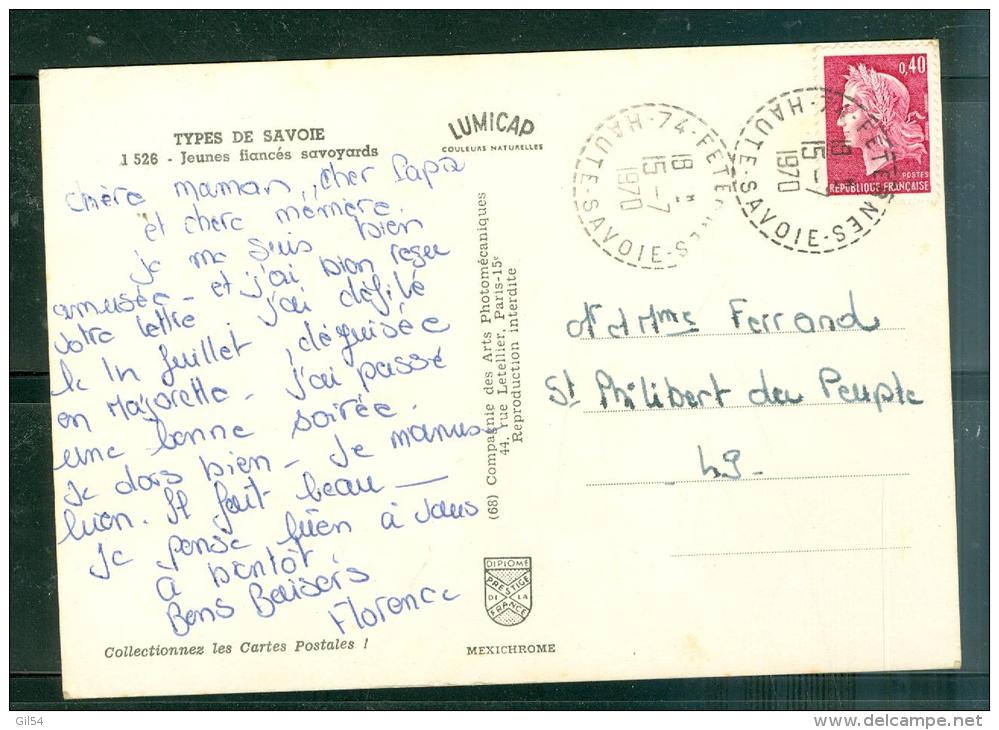 TYPES DE SAVOIE
1 526 - Jeunes fiancés savoyards
LUMICAP
COULEURS NATURELLES
chère maman, cher Papa
et chere mémère.
je me suis bien
amusée - et j'ai bien reçu
votre lettre j'ai défilé
le 14 Juillet, déguisée
en Majorette - j'ai passé
une bonne soirée.
Je dors bien - Je manus
bien. Il fait beau —
Je pense bien à vous
à bientôt
Bons Baisers
Florence
Collectionnez les Cartes Postales !
(68) Compagnie des Arts Photomécaniques
44, rue Letellier, Paris-15e
Reproduction interdite
DIPLOME
PRESTIGE
DE LA
FRANCE
MEXICHROME
0,40
POSTES
REPUBLIQUE FRANÇAISE
74-FETERNES
18 H
15-7
1970
HAUTE-SAVOIE
74-FETERNES
18 H
15-7
1970
HAUTE-SAVOIE
M et Mme Ferrand
St Philibert du Peuple
49-
Gil54
delcampe.net